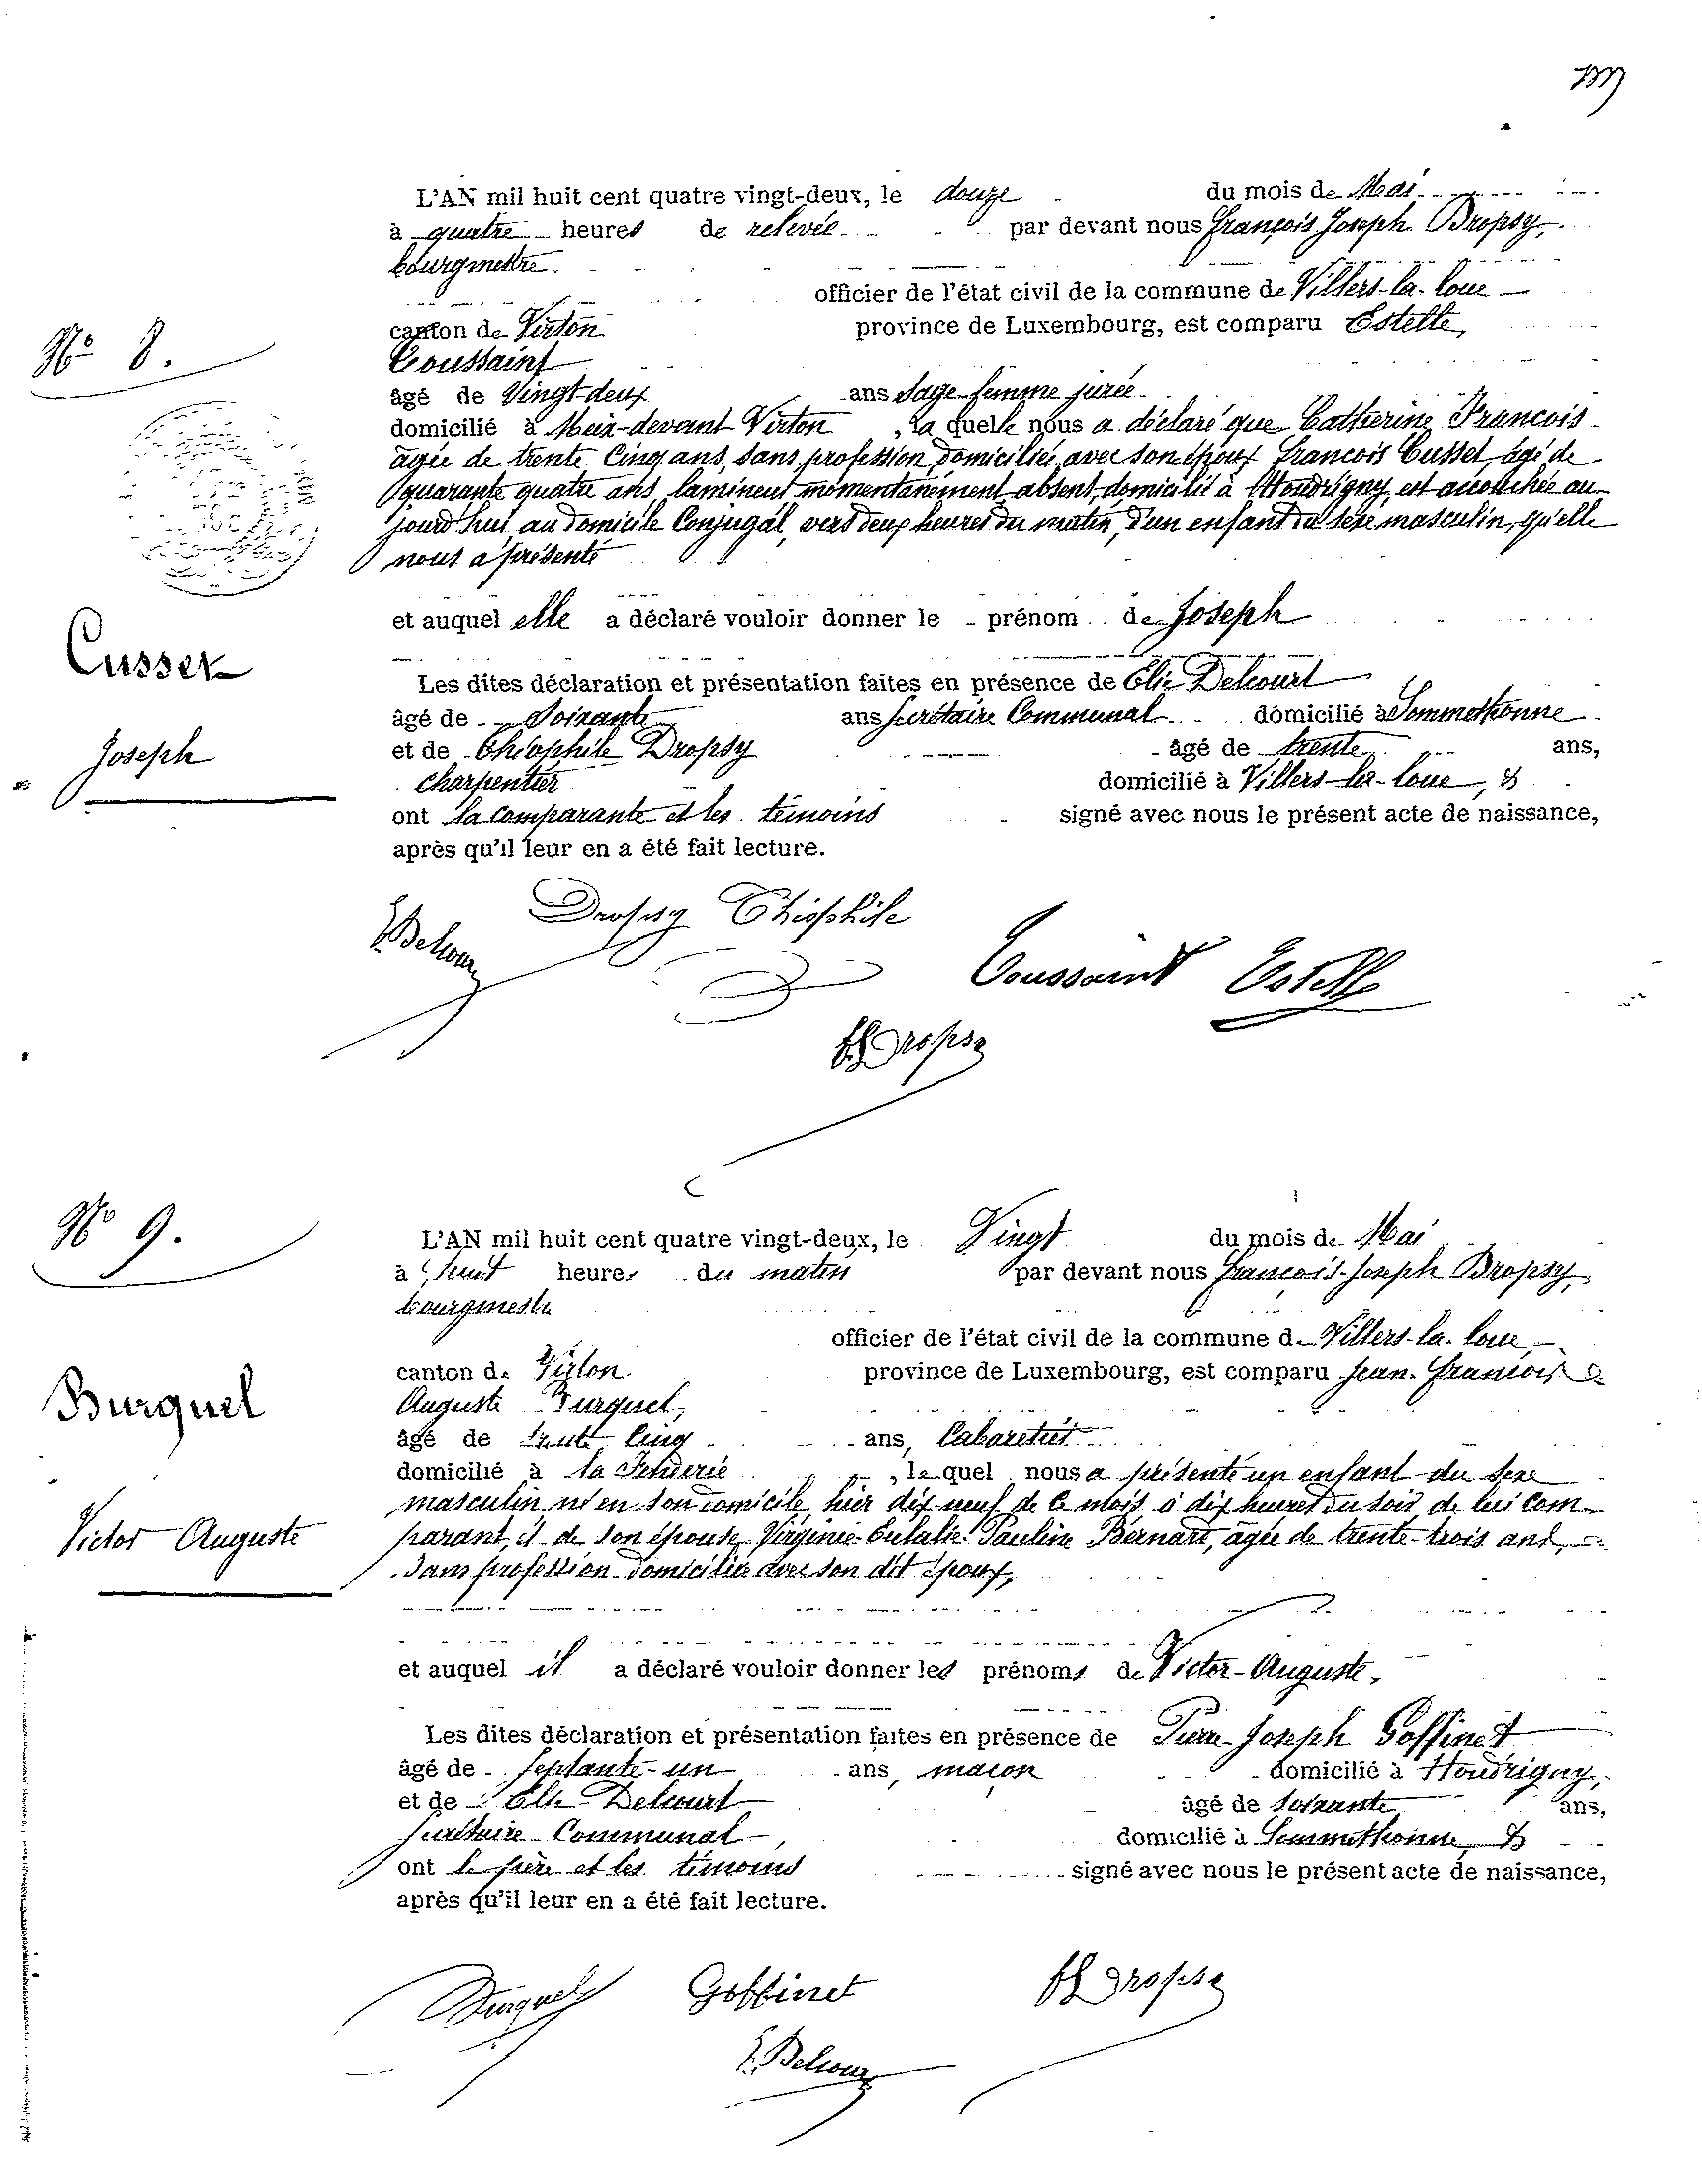 L'AN mil huit cent quatre vingt-deux, le douze du mois de Mai
à quatre heures de relevée par devant nous François Joseph Dropsy,
bourgmestre
officier de l'état civil de la commune de Villers-la-loue
N° 8.
canton de Virton province de Luxembourg, est comparu Estelle,
Toussaint
âgé de Vingt-deux ans sage-femme jurée
domicilié à Meix-devant Virton, la quelle nous a déclaré que Catherine François
agée de trente cinq ans, sans profession, domiciliée avec son époux François Cusset, âgé de
quarante quatre ans, lamineur momentanément absent, domicilié à Houdrigny, est accouchée au
jourd'hui, au domicile Conjugal, vers deux heures du matin, d'un enfant du sexe masculin, qu'elle
nous a présenté
et auquel elle a déclaré vouloir donner le prénom de Joseph
Cusset
Les dites déclaration et présentation faites en présence de Elie Delcourt
âgé de Soixante ans secrétaire Communal domicilié à Sommethonne
Joseph
et de Théophile Dropsy âgé de trente ans,
charpentier domicilié à Villers-la-loue, &
ont la comparante et les témoins signé avec nous le présent acte de naissance,
après qu'il leur en a été fait lecture.
Dropsy Théophile
E. Delcour
Toussaint Estelle
fJDropsy
N° 9.
L'AN mil huit cent quatre vingt-deux, le Vingt du mois de Mai
à huit heures du matin par devant nous François-Joseph Dropsy,
bourgmestre
officier de l'état civil de la commune de Villers-la-loue,
canton de Virton province de Luxembourg, est comparu Jean-François
Burquel
Auguste Burquel,
âgé de trente cinq ans, Cabaretier
domicilié à la Fenderie, le quel nous a présenté un enfant du sexe
masculin né en son domicile, hier dix neuf de ce mois à dix heures du soir, de lui com-
Victor Auguste
parant, et de son épouse Virginie-Eulalie-Pauline Bernard, âgée de trente-trois ans,
sans profession domiciliée avec son dit époux,
et auquel il a déclaré vouloir donner les prénoms de Victor-Auguste,
Les dites déclaration et présentation faites en présence de Pierre-Joseph Goffinet
âgé de septante-un ans, maçon domicilié à Houdrigny,
et de Elie Delcourt âgé de soixante ans,
secrétaire Communal, domicilié à Sommethonne, &
ont le père et les témoins signé avec nous le présent acte de naissance,
après qu'il leur en a été fait lecture.
Burquel Goffinet fJDropsy
E. Delcour